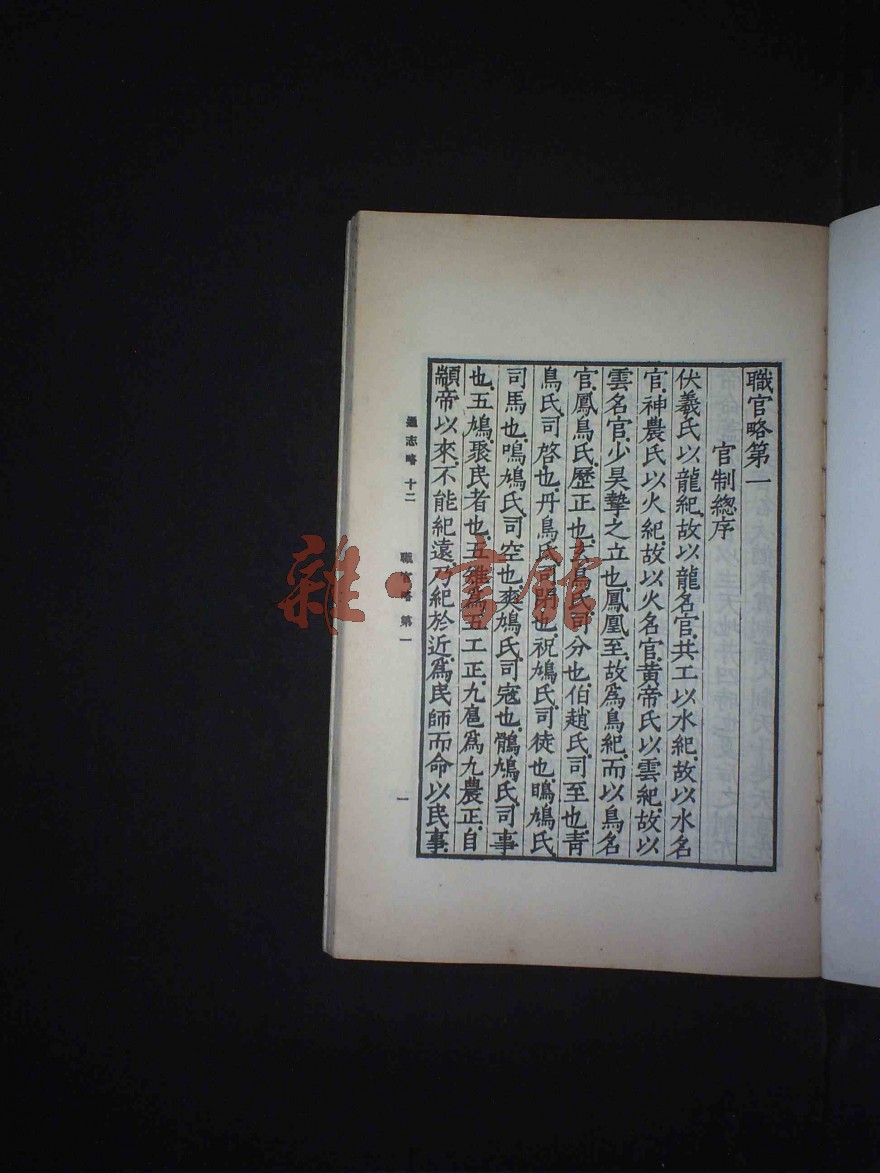 職官略第一
官制總序
伏羲氏以龍紀.故以龍名官.共工以水紀.故以水名
官.神農氏以火紀.故以火名官.黄帝氏以雲紀.故以
雲名官.少昊摯之立也.鳳凰至.故爲鳥紀.而以鳥名
官.鳳鳥氏.歷正也.玄鳥氏.司分也.伯趙氏.司至也.靑
鳥氏.司啓也.丹鳥氏.司閉也.祝鳩氏.司徒也.鴡鳩氏.
司馬也.鳲鳩氏.司空也.爽鳩氏.司寇也.鶻鳩氏.司事
也.五鳩.聚民者也.五雉爲五工正.九扈爲九農正.自
顓帝以來.不能紀遠.乃紀於近.爲民師而命以民事
通志略 十二 職官略 第一 一
雜·書館